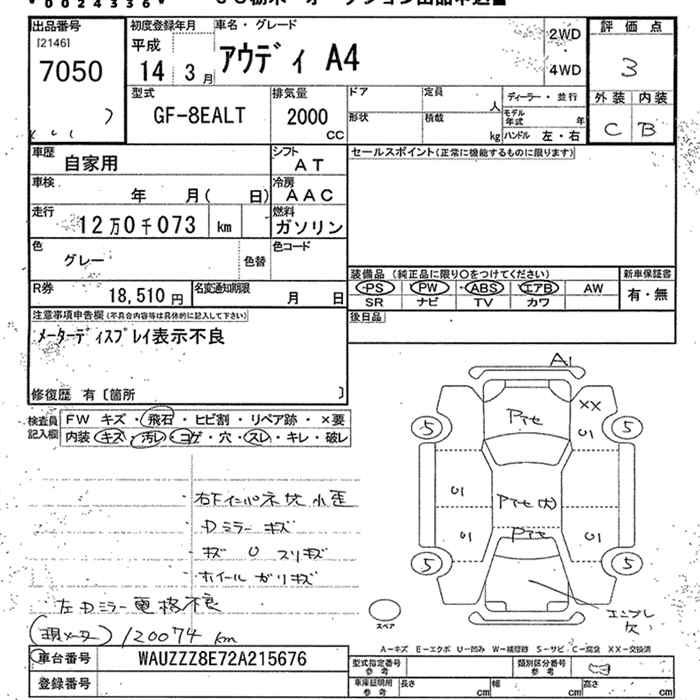 00243360
出品番号
[2146]
7050
初度登録年月
平成
14年 3月
車名・グレード
アウディ A4
2WD
4WD
評価点
3
外装 内装
C B
型式
GF-8EALT
排気量
2000
CC
ドア
定員
人
形状
積載
kg
ディーラー・並行
モデル年式 年
ハンドル 左・右
車歴
自家用
シフト
AT
セールスポイント(正常に機能するものに限ります)
車検
年 月( 日)
冷房
AAC
走行
12万0千073 km
燃料
ガソリン
色
グレー
色替
色コード
R券
18,510円
名変通知期限
月 日
装備品 (純正品に限り○をつけてください)
PS PW ABS エアB AW
SR ナビ TV カワ
新車保証書
有・無
後日品
注意事項申告欄(不具合内容等は具体的に記入して下さい)
メーターディスプレイ表示不良
修復歴 有〔箇所 〕
検査員記入欄
FW キズ・飛石・ヒビ割・リペア跡・×要
内装 キズ・汚レ・コゲ・穴・スレ・キレ・破レ
A1
XX
U1
5
5
5
5
U1
U1
U1
・Dミラー キズ
・キズ U スリキズ
・ホイール ガリキズ
左Dミラー 格不良
(現メーター) 120074 km
スペア
A-キズ E-エクボ U-凹み W-補修跡 S-サビ C-腐食 XX-交換済
車台番号
WAUZZZ8E72A215676
登録番号
型式指定番号
参考
類別区分番号
参考
車庫証明用
参考
長さ cm
幅 cm
高さ cm